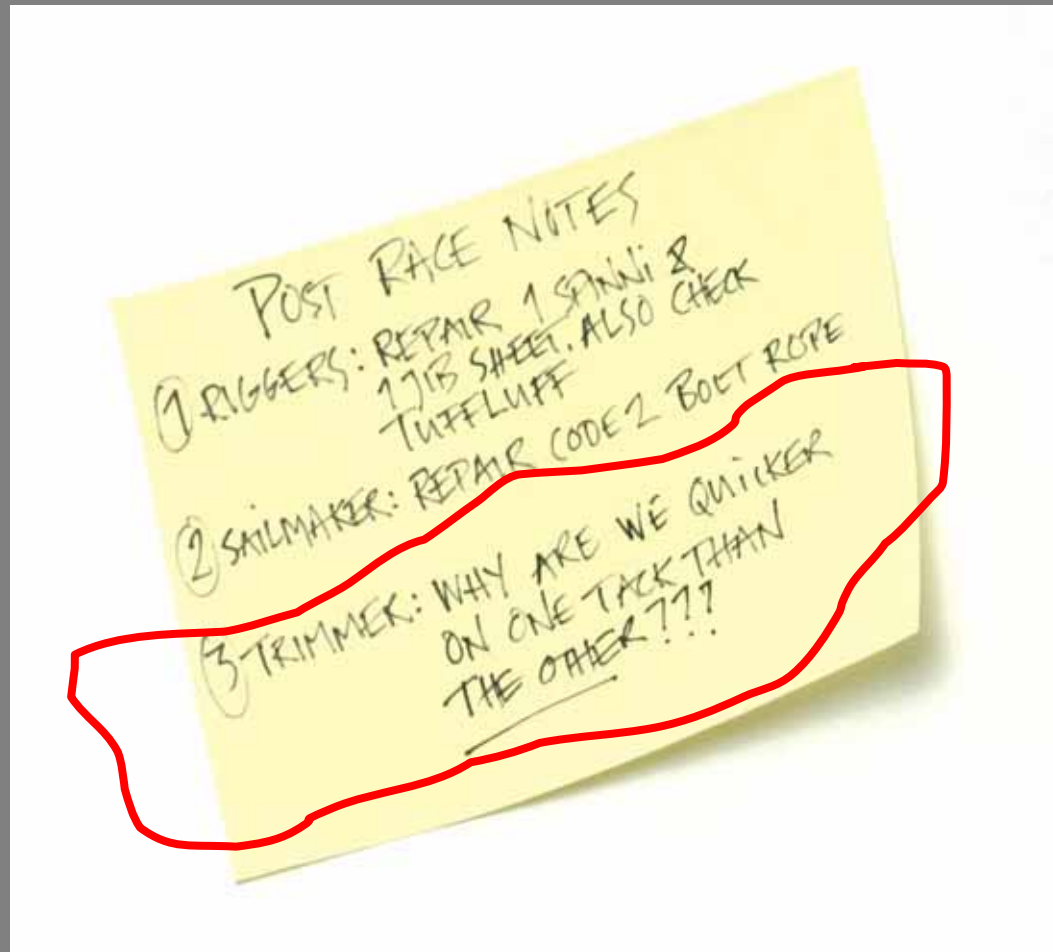 POST RACE NOTES
① RIGGERS: REPAIR 1 SPINNI &
1 JIB SHEET. ALSO CHECK
TUFFLUFF
② SAILMAKER: REPAIR CODE 2 BOLT ROPE
③ TRIMMER: WHY ARE WE QUICKER
ON ONE TACK THAN
THE OTHER???